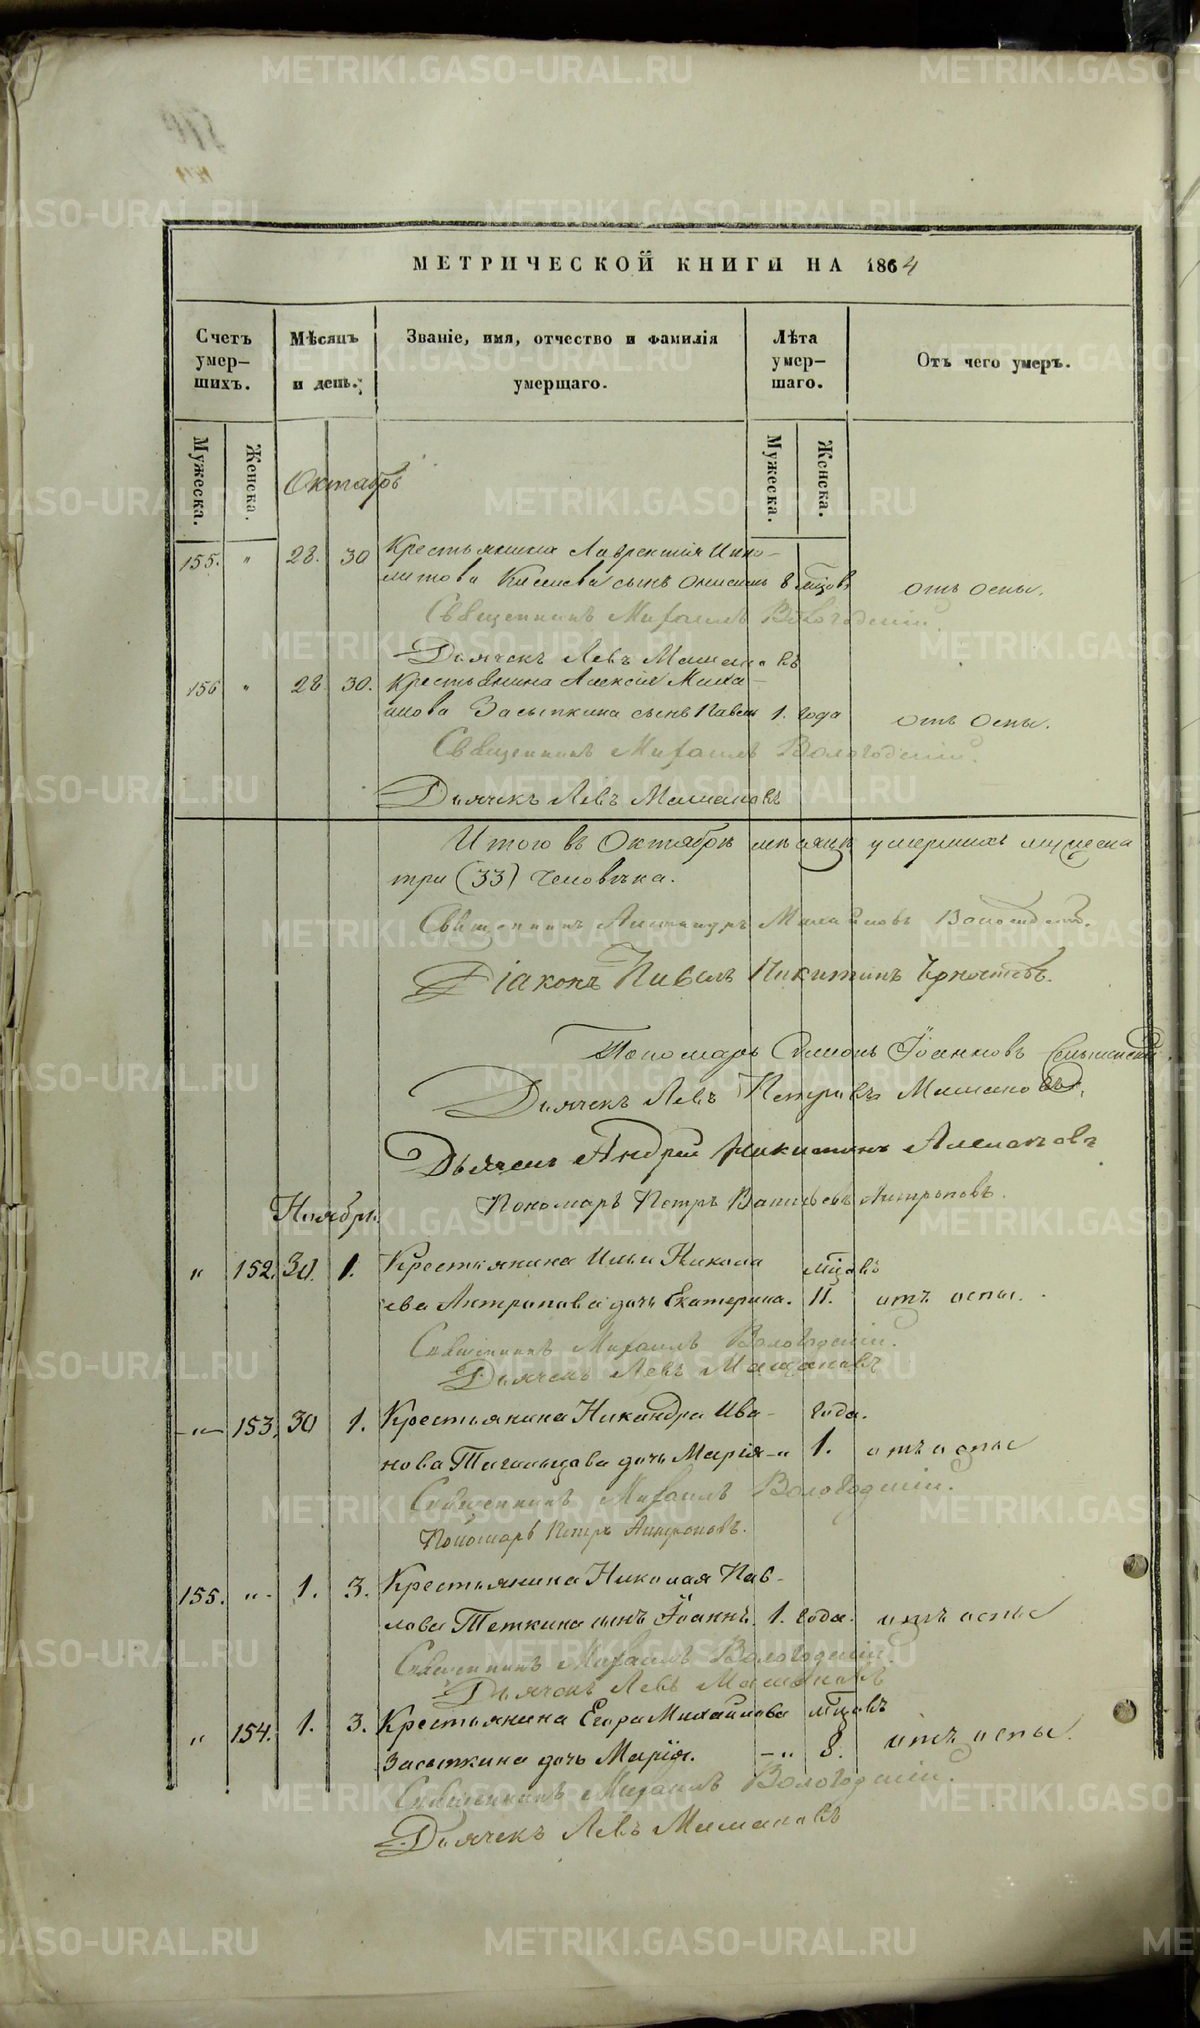 МЕТРИЧЕСКОЙ КНИГИ НА 1864
Счетъ умер-шихъ.
Мѣсяцъ и день.
Званіе, имя, отчество и фамилія умершаго.
Лѣта умер-шаго.
Отъ чего умеръ.
Мужеска.
Женска.
Мужеска.
Женска.
Октябрь
155. " 28. 30 Крестьянина Лаврентія Иппо-
литова сынъ 8 мцовъ отъ оспы.
Священникъ Михаилъ Вологодскій.
Дьячекъ Левъ Машановъ
156 " 28 30. Крестьянина Алексія Миха-
лова Засыпкина сынъ Павелъ 1. года отъ оспы.
Священникъ Михаилъ Вологодскій.
Дьячекъ Левъ Машановъ
Итого въ Октябрѣ мѣсяцѣ умершихъ мужеска
три (33) человѣка.
Священникъ Михайловъ
Діаконъ Павелъ Никитинъ
Пономарь Симонъ Іоанновъ
Дьячекъ Левъ Петровъ Машановъ.
Дьячекъ Андрей Никитинъ
Пономарь Петръ Васильевъ Антроповъ.
Ноябрь.
" 152. 30. 1. Крестьянина Ильи Никола
ева Антропова дочь Екатерина. мцовъ 11. отъ оспы.
Священникъ Михаилъ Вологодскій.
Дьячекъ Левъ Машановъ
" 153. 30 1. Крестьянина Никандра Ива-
нова дочь Марія " года. 1. отъ оспы
Священникъ Михаилъ Вологодскій.
Пономарь Петръ Антроповъ.
155. " 1. 3. Крестьянина Николая Пав-
лова Теткина сынъ Іоаннъ. 1. года. отъ оспы
Священникъ Михаилъ Вологодскій.
Дьячекъ Левъ Машановъ
" 154. 1. 3. Крестьянина Егора Михайлова мцовъ
Засыпкина дочь Марія. " 8. отъ оспы.
Священникъ Михаилъ Вологодскій.
Дьячекъ Левъ Машановъ
METRIKI.GASO-URAL.RU